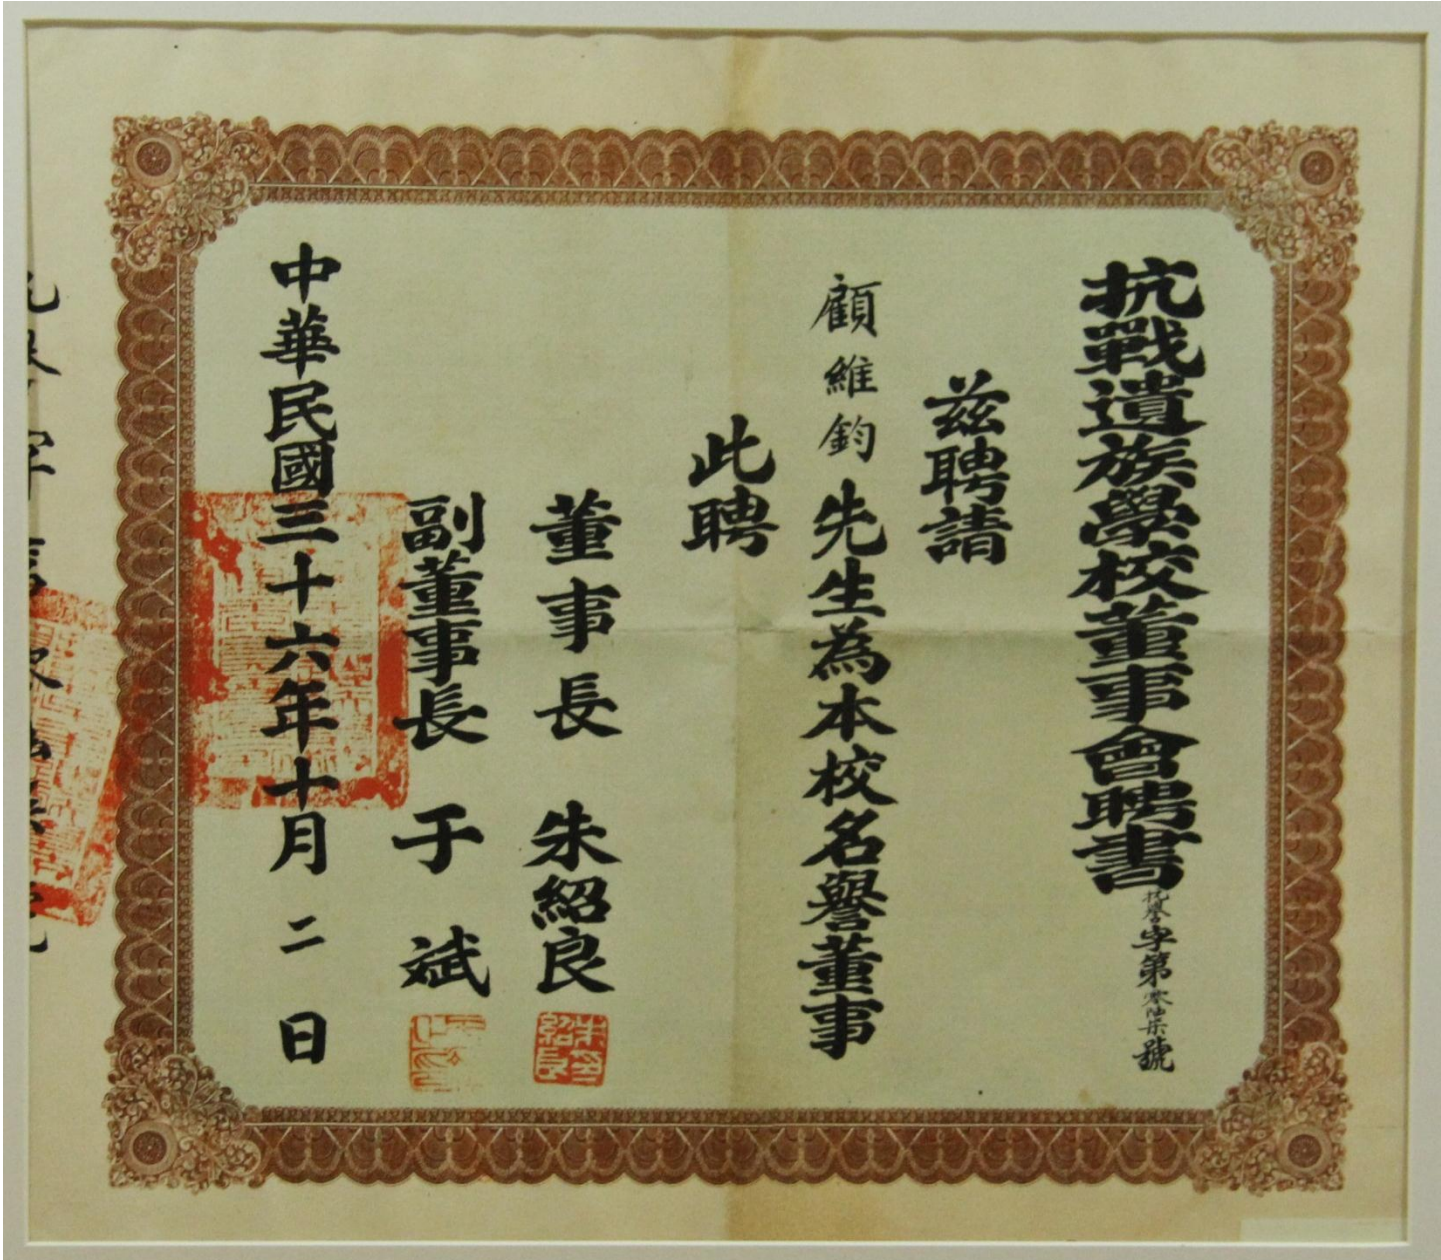 抗戰遺族學校董事會聘書
抗譽字第 號
茲聘請
顧維鈞先生為本校名譽董事
此聘
董事長 朱紹良
副董事長 于斌
中華民國三十六年十月二日